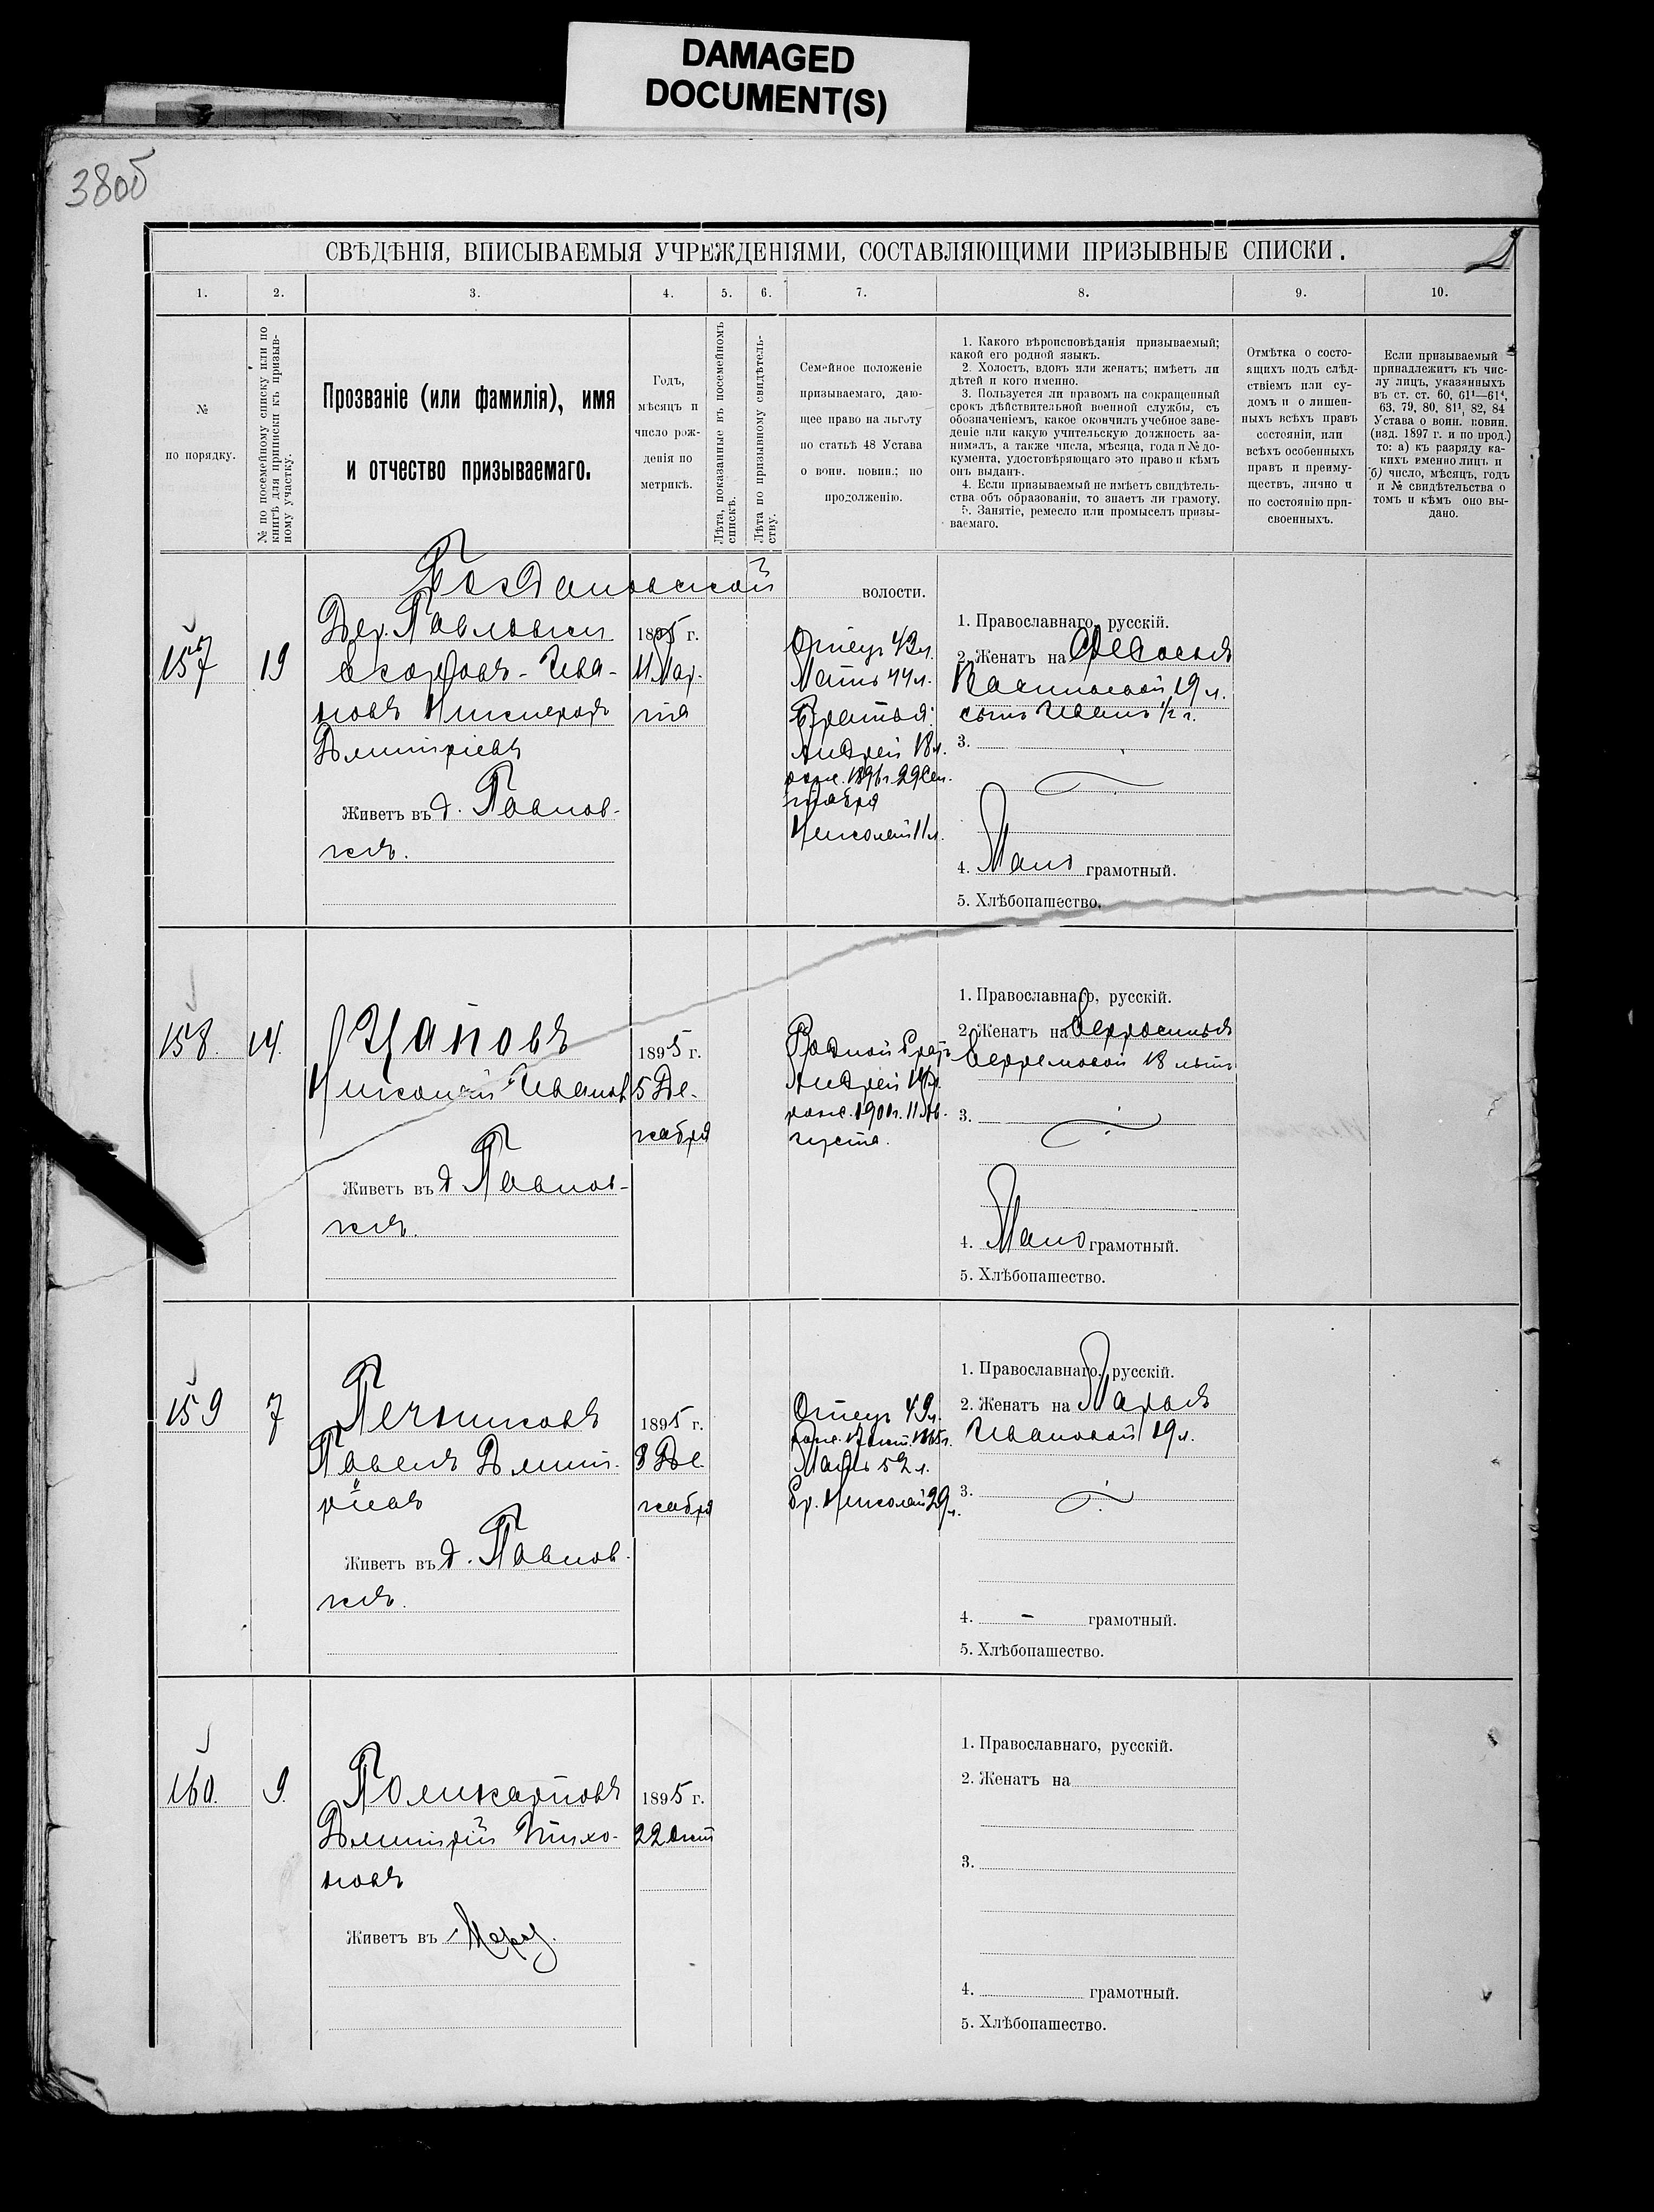 DAMAGED
DOCUMENT(S)
380б
СВѢДѢНІЯ, ВПИСЫВАЕМЫЯ УЧРЕЖДЕНІЯМИ, СОСТАВЛЯЮЩИМИ ПРИЗЫВНЫЕ СПИСКИ.
1.
2.
3.
4.
5.
6.
7.
8.
9.
10.
№
по порядку.
№ по посемейному списку или по
книгѣ для приписки къ призыв-
ному участку.
Прозваніе (или фамилія), имя
и отчество призываемаго.
Годъ,
мѣсяцъ и
число рож-
денія по
метрикѣ.
Лѣта, показанные въ посемейномъ
спискѣ.
Лѣта по призывному свидѣтель-
ству.
Семейное положеніе
призываемаго, даю-
щее право на льготу
по статьѣ 48 Устава
о воин. повин.; по
продолженію.
1. Какого вѣроисповѣданія призываемый;
какой его родной языкъ.
2. Холостъ, вдовъ или женатъ; имѣетъ ли
дѣтей и кого именно.
3. Пользуется ли правомъ на сокращенный
срокъ дѣйствительной военной службы, съ
обозначеніемъ, какое окончилъ учебное заве-
деніе или какую учительскую должность за-
нималъ, а также числа, мѣсяца, года и № до-
кумента, удостовѣряющаго это право и кѣмъ
онъ выданъ.
4. Если призываемый не имѣетъ свидѣтель-
ства объ образованіи, то знаетъ ли грамоту.
5. Занятіе, ремесло или промыселъ призы-
ваемаго.
Отмѣтка о состо-
ящихъ подъ слѣд-
ствіемъ или су-
домъ и о лишен-
ныхъ всѣхъ правъ
состоянія, или
всѣхъ особенныхъ
правъ и преиму-
ществъ, лично и
по состоянію при-
своенныхъ.
Если призываемый
принадлежитъ къ чис-
лу лицъ, указанныхъ
въ ст. ст. 60, 61¹—61⁴,
63, 79, 80, 81¹, 82, 84
Устава о воин. повин.
(изд. 1897 г. и по прод.)
то: а) къ разряду ка-
кихъ именно лицъ и
б) число, мѣсяцъ, годъ
и № свидѣтельства о
томъ и кѣмъ оно вы-
дано.
Богдановской волости.
157
19
Дер. Павловки
Ива-
новъ Никифоръ
Дмитріевъ
Живетъ въ д. Павлов-
кѣ.
1895 г.
11 Мар-
та
Отецъ 43 л.
Мать 44 л.
Братья:
Андрей 18 л.
рожд. 1896 г. 29 Сен-
тября
Николай 11 л.
1. Православнаго, русскій.
2. Женатъ на Ѳедосьѣ
19 л.
сынъ Иванъ ½ г.
3.
4. Мало грамотный.
5. Хлѣбопашество.
158.
14.
Цаповъ
Николай Ивановъ
Живетъ въ д. Павлов-
кѣ.
1895 г.
5 Де-
кабря
Родной братъ
Андрей 14 л.
рожд. 1901 г. 11 Ав-
густа.
1. Православнаго, русскій.
2. Женатъ на Ефросиньѣ
Ефремовой 18 лѣтъ
3.
4. Мало грамотный.
5. Хлѣбопашество.
159
7
Печниковъ
Павелъ Дмит-
ріевъ
Живетъ въ д. Павлов-
кѣ.
1895 г.
3 Де-
кабря
Отецъ 49 л.
Мать 52 л.
бр. Николай 29 л.
1. Православнаго, русскій.
2. Женатъ на Марьѣ
Ивановой 19 л.
3.
4. - грамотный.
5. Хлѣбопашество.
160.
9.
Поликарповъ
Дмитрій Тихо-
новъ
Живетъ въ
1895 г.
22 Окт
1. Православнаго, русскій.
2. Женатъ на
3.
4. грамотный.
5. Хлѣбопашество.